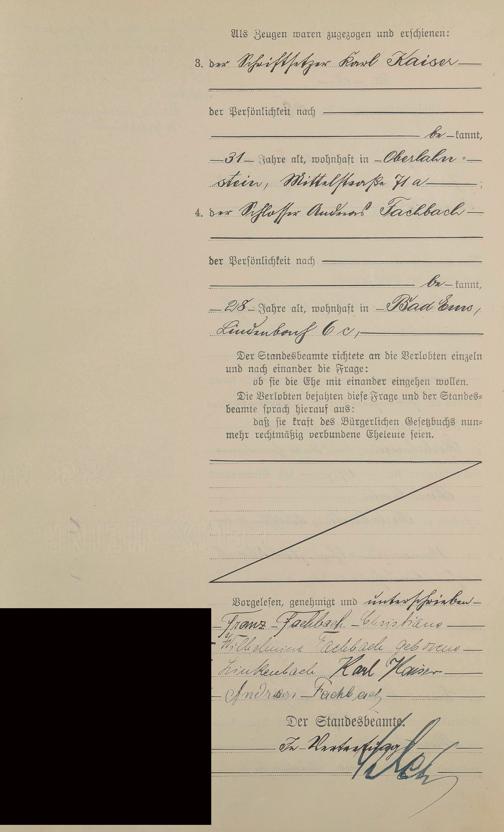 Als Zeugen waren zugezogen und erschienen:
3. der Schriftsetzer Karl Kaiser
der Persönlichkeit nach
be kannt,
31 Jahre alt, wohnhaft in Oberlahn-
stein, Mittelstraße 71 a ;
4. der Schlosser Andreas Fachbach
der Persönlichkeit nach
be kannt,
28 Jahre alt, wohnhaft in Bad Ems,
Lindenbach 6 c,
Der Standesbeamte richtete an die Verlobten einzeln
und nach einander die Frage:
ob sie die Ehe mit einander eingehen wollen.
Die Verlobten bejahten diese Frage und der Standes=
beamte sprach hierauf aus:
daß sie kraft des Bürgerlichen Gesetzbuchs nun=
mehr rechtmäßig verbundene Eheleute seien.
Vorgelesen, genehmigt und unterschrieben
Franz Fachbach Christiane
Wilhelmine Fachbach geborene
Linkenbach Karl Kaiser
Andreas Fachbach
Der Standesbeamte.
In Vertretung